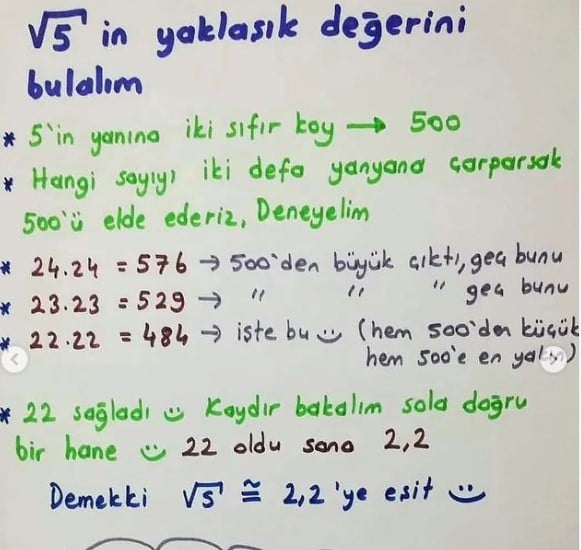 √5'in yaklaşık değerini
bulalım
* 5'in yanına iki sıfır koy → 500
* Hangi sayıyı iki defa yanyana çarparsak
500'ü elde ederiz, Deneyelim
* 24.24 = 576 → 500'den büyük çıktı, geç bunu
* 23.23 = 529 → " " " geç bunu
* 22.22 = 484 → işte bu (hem 500'den küçük
hem 500'e en yakın)
* 22 sağladı Kaydır bakalım sola doğru
bir hane 22 oldu sana 2,2
Demekki √5 ≅ 2,2'ye eşit